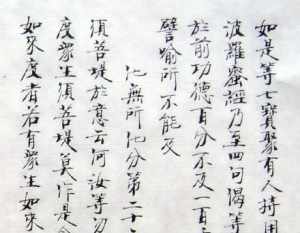 如是等七寶聚有人持用
波羅蜜經乃至四句偈等
於前功德百分不及一百
譬喻所不能及
化無所化分第二十
須菩提於意云何汝等勿
度眾生須菩提莫作是念
如來度者若有眾生如來